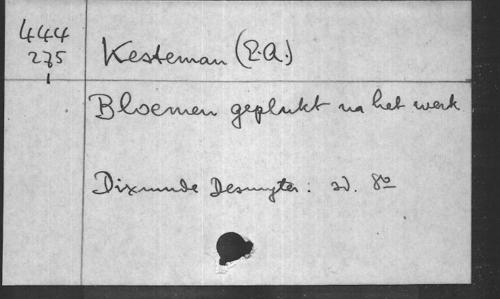 444
275
1
Kesteman (E.A.)
Bloemen geplukt na het werk
Dixmude Desmyter: sd. 8º